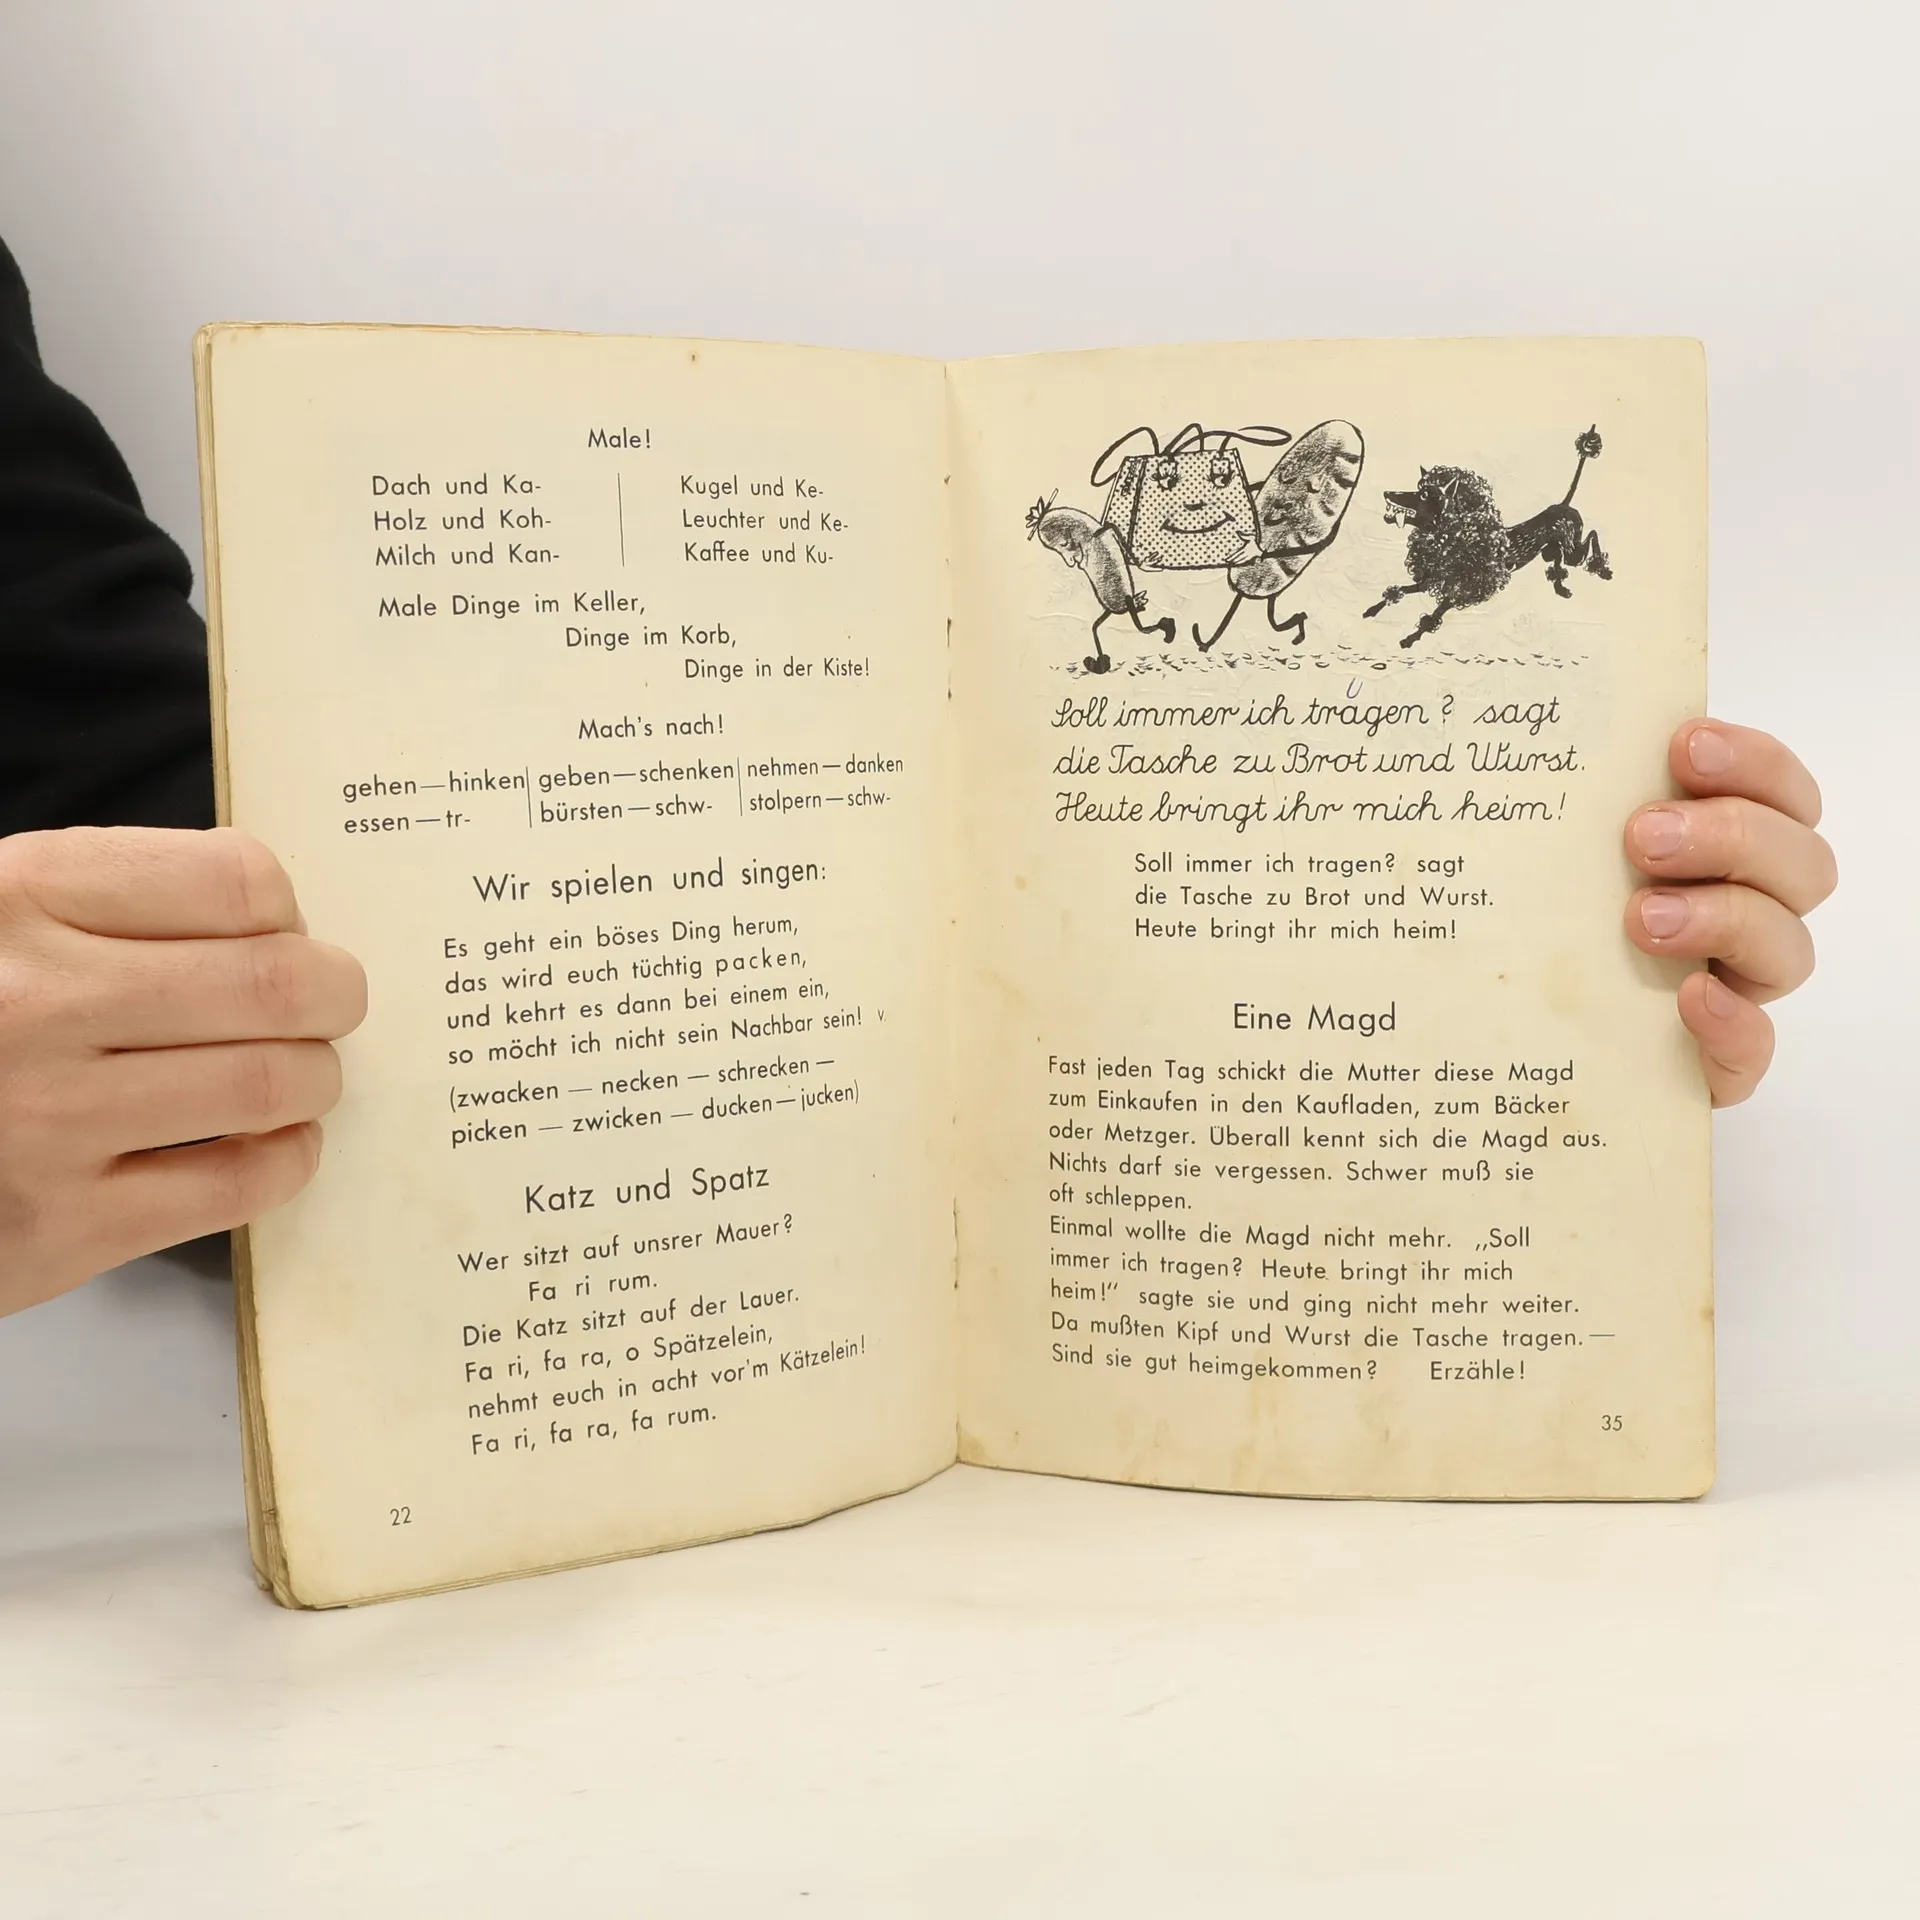 Male!
Dach und Ka-
Holz und Koh-
Milch und Kan-
Kugel und Ke-
Leuchter und Ke-
Kaffee und Ku-
Male Dinge im Keller,
Dinge im Korb,
Dinge in der Kiste!
Mach's nach!
gehen — hinken | geben — schenken | nehmen — danken
essen — tr- | bürsten — schw- | stolpern — schw-
Wir spielen und singen:
Es geht ein böses Ding herum,
das wird euch tüchtig packen,
und kehrt es dann bei einem ein,
so möcht ich nicht sein Nachbar sein! v.
(zwacken — necken — schrecken —
picken — zwicken — ducken — jucken)
Katz und Spatz
Wer sitzt auf unsrer Mauer?
Fa ri rum.
Die Katz sitzt auf der Lauer.
Fa ri, fa ra, o Spätzelein,
nehmt euch in acht vor'm Kätzelein!
Fa ri, fa ra, fa rum.
22
Soll immer ich tragen? sagt
die Tasche zu Brot und Wurst.
Heute bringt ihr mich heim!
Soll immer ich tragen? sagt
die Tasche zu Brot und Wurst.
Heute bringt ihr mich heim!
Eine Magd
Fast jeden Tag schickt die Mutter diese Magd
zum Einkaufen in den Kaufladen, zum Bäcker
oder Metzger. Überall kennt sich die Magd aus.
Nichts darf sie vergessen. Schwer muß sie
oft schleppen.
Einmal wollte die Magd nicht mehr. „Soll
immer ich tragen? Heute bringt ihr mich
heim!“ sagte sie und ging nicht mehr weiter.
Da mußten Kipf und Wurst die Tasche tragen. —
Sind sie gut heimgekommen? Erzähle!
35